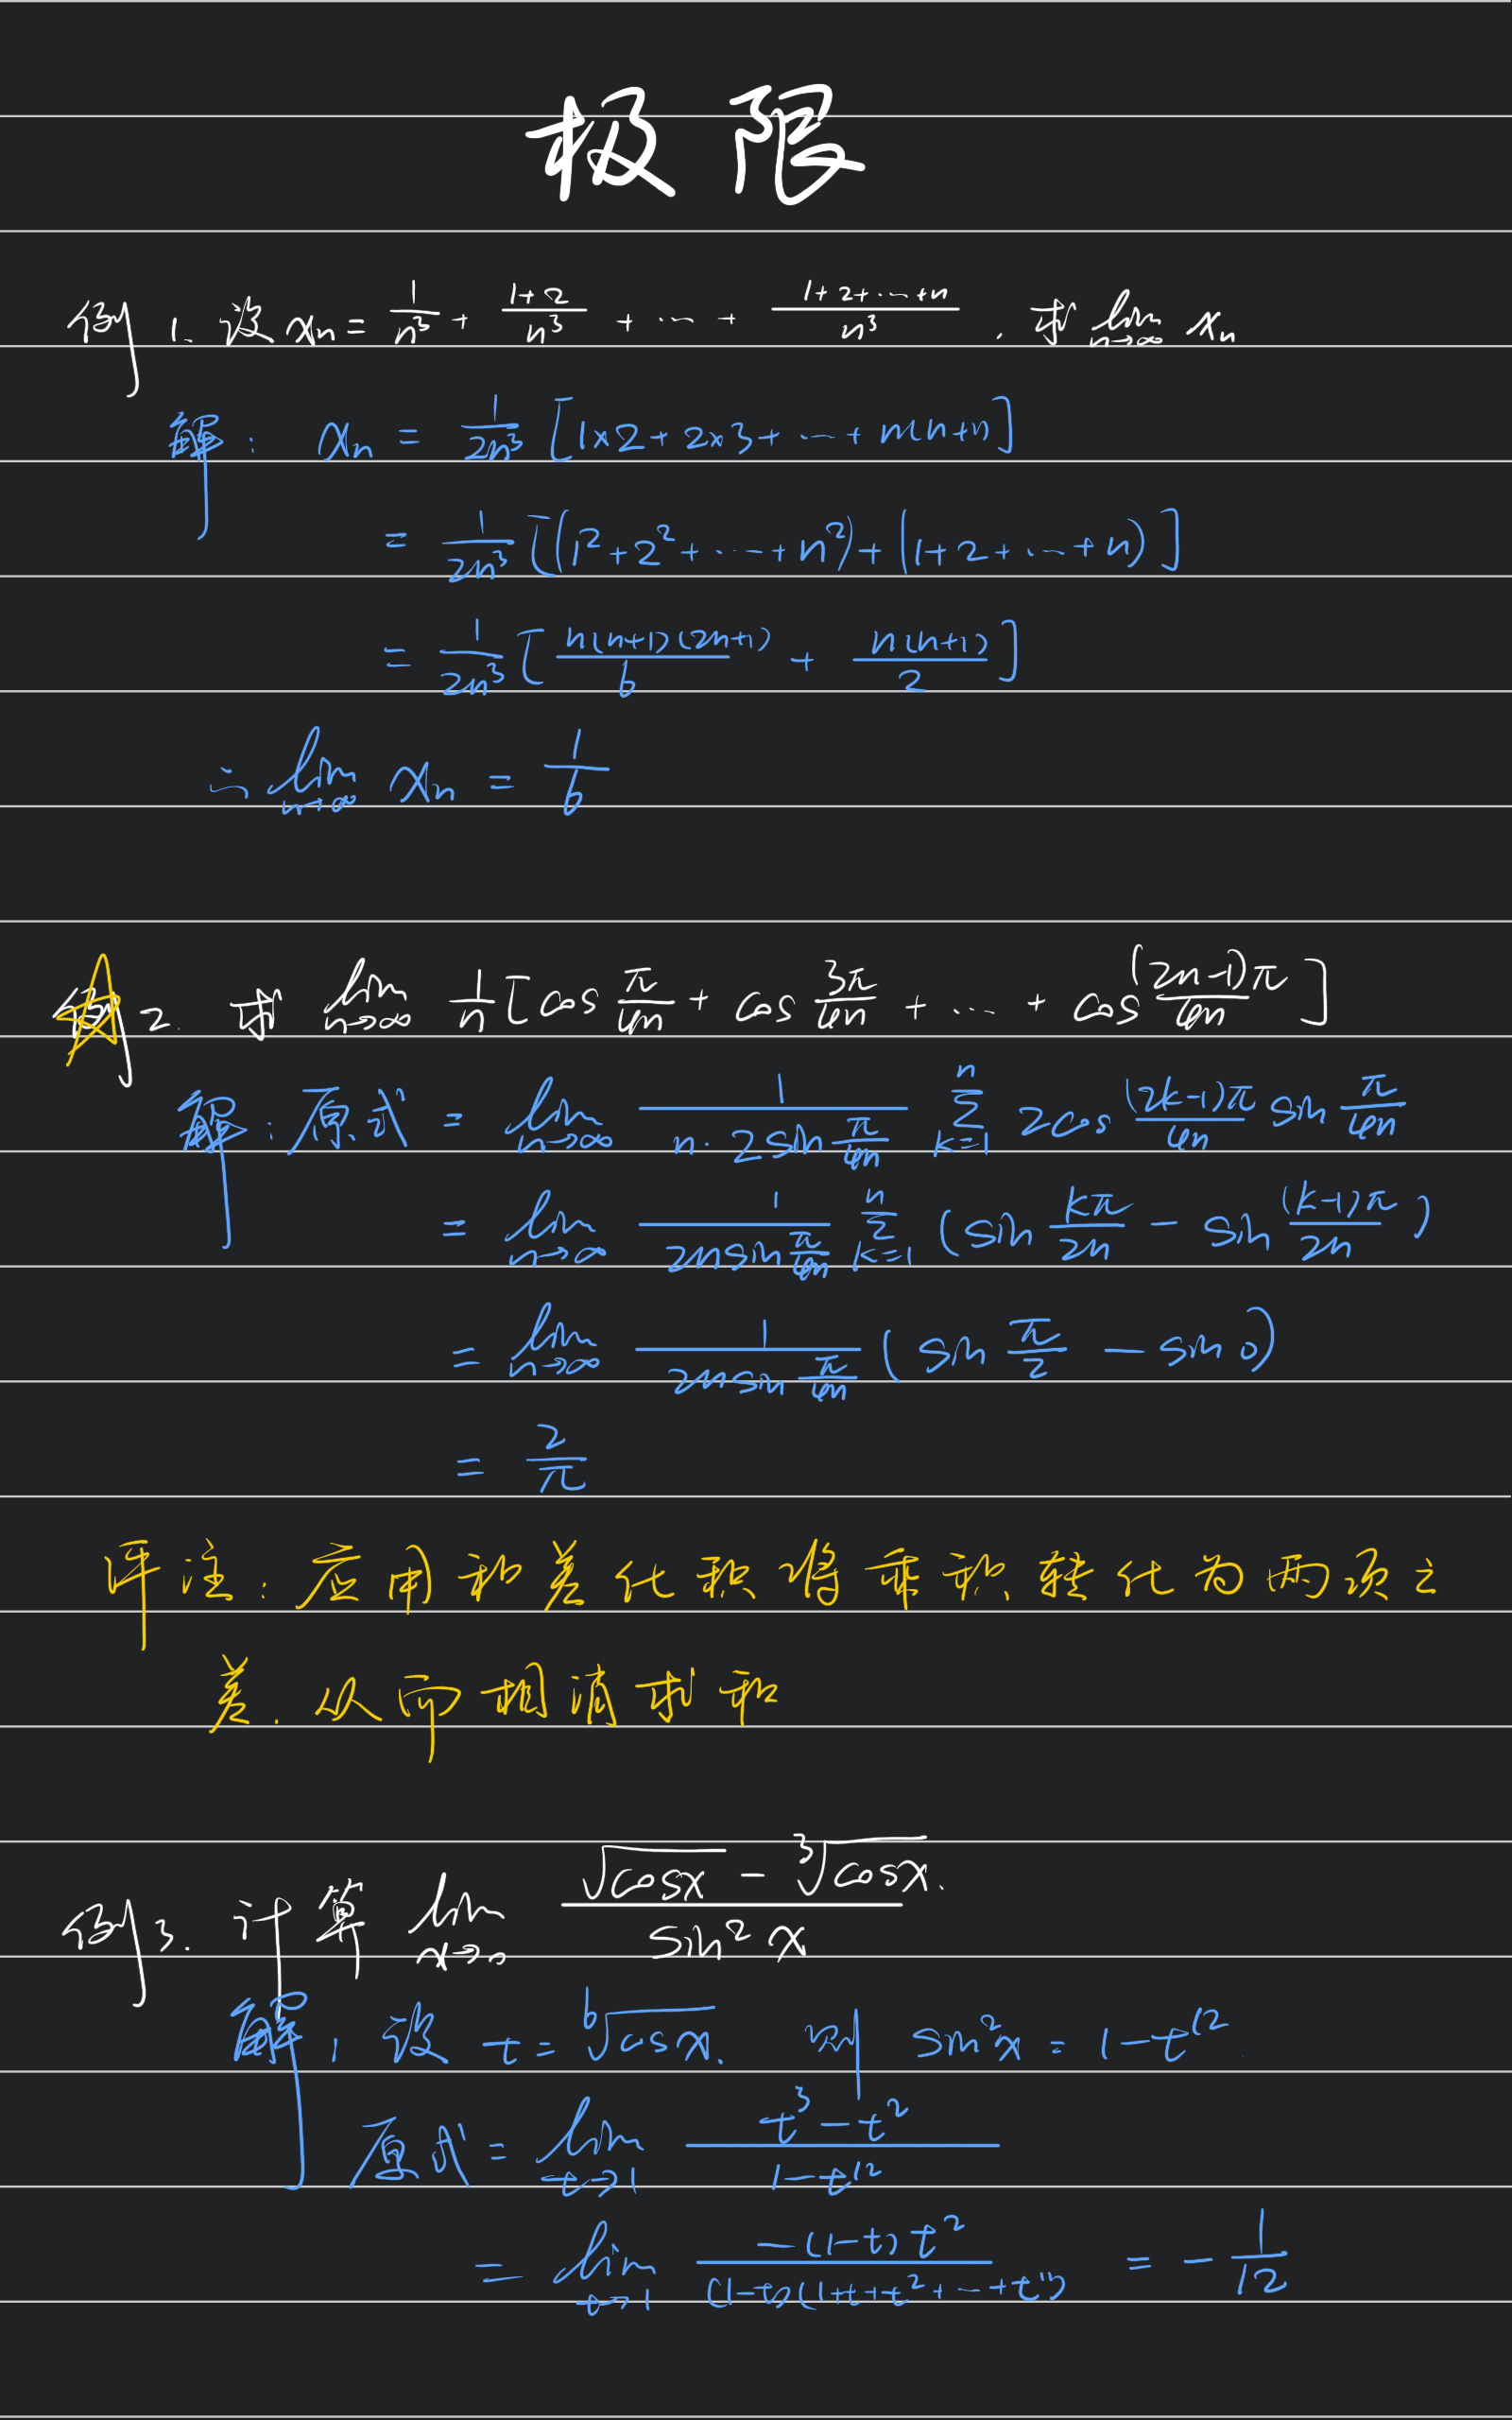 极限
例1. 设 xₙ = 1/n³ + (1+2)/n³ + ⋯ + (1+2+⋯+n)/n³ . 求 lim_{n→∞} xₙ
解: xₙ = 1/(2n³) [1×2 + 2×3 + ⋯ + n(n+1)]
= 1/(2n³) [(1²+2²+⋯+n²) + (1+2+⋯+n)]
= 1/(2n³) [n(n+1)(2n+1)/6 + n(n+1)/2]
∴ lim_{n→∞} xₙ = 1/6
例2. 求 lim_{n→∞} 1/n [cos π/4n + cos 3π/4n + ⋯ + cos (2n-1)π/4n]
解: 原式 = lim_{n→∞} 1/(n·2sin π/4n) ∑_{k=1}^{n} 2cos (2k-1)π/4n sin π/4n
= lim_{n→∞} 1/(2n sin π/4n) ∑_{k=1}^{n} (sin kπ/2n - sin (k-1)π/2n)
= lim_{n→∞} 1/(2n sin π/4n) (sin π/2 - sin 0)
= 2/π
评注: 应用和差化积将乘积转化为两项之
差. 从而相消求和
例3. 计算 lim_{x→0} (√cosx - ³√cosx)/sin²x
解: 设 t = ⁶√cosx. 则 sin²x = 1-t¹²
原式 = lim_{t→1} (t³-t²)/(1-t¹²)
= lim_{t→1} -(1-t)t²/((1-t)(1+t+t²+⋯+t¹¹)) = -1/12